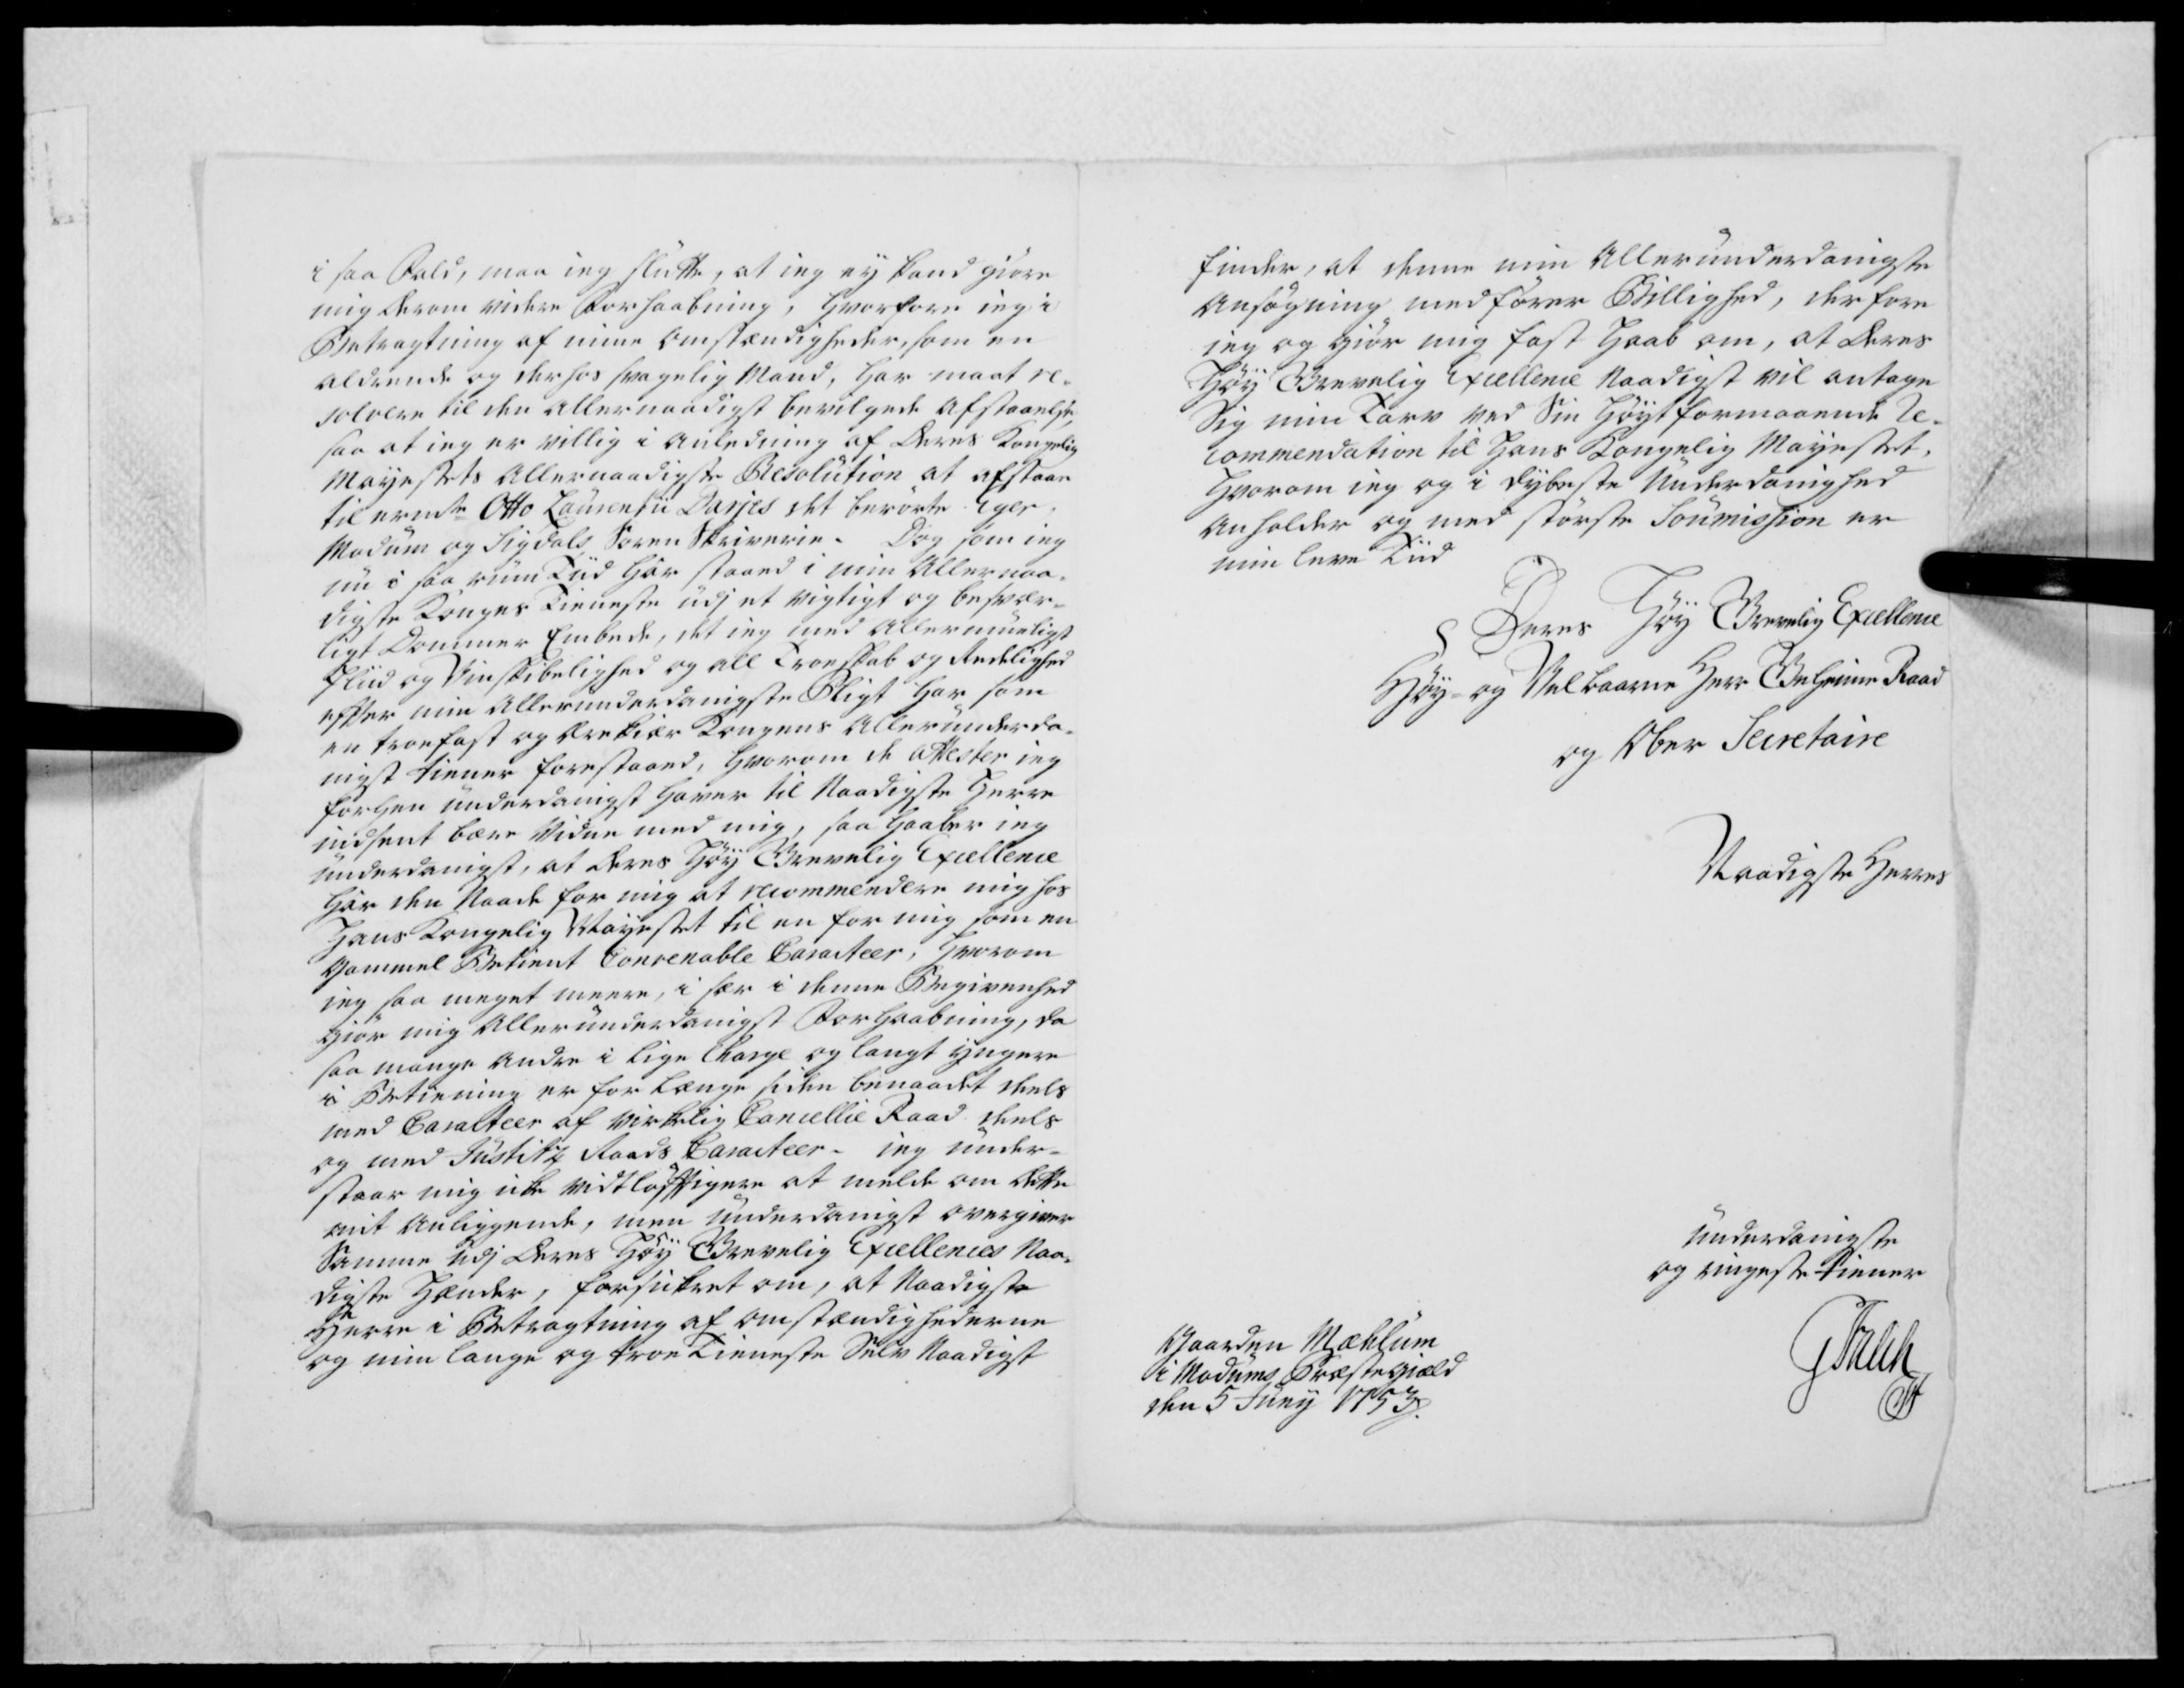 i saa Fald, maa ieg slutte, at ieg ey kand giöre
mig derom videre Forhaabning, hvorfore ieg i
Betragtning af mine omstændigheder, som en
aldrende og derhos svagelig Mand, har maat re-
solvere til den allernaadigst bevilgede Afstaaelse,
saa at ieg er villig i Anledning af Deres Kongelig
Mayestets Allernaadigste Resolution at afstaae
til ermte Otto Laurentii Darjes det berörte Eger,
Modum og Sigdals Soren Skriverie. Dog som ieg
nu i saa rum Tiid har staaed i min Allernaa-
digste Konges Tieneste udj et vigtigt og besvær-
ligt Dommer Embede, det ieg med Allermueligst
Fliid og Vinskibelighed og all Troeskab og Redelighed
efter min Allerunderdanigste Pligt har som
en troefast og Ærekiær Kongens Allerunderda-
nigst tiener forestaaed, hvorom de Attester ieg
forhen underdanigst haver til Naadigste Herre
indsent bære Vidne med mig, saa haaber ieg
underdanigst, at Deres Höy Grevelig Excellence
har den Naade for mig at recommendere mig hos
Hans Kongelig Mayestet til en for mig som en
Gammel Betient Convenable Caracteer, hvorom
ieg saa meget meere, i sær i denne Begivenhed
giör mig Allerunderdanigst Forhaabning, da
saa mange Andre i lige Charge og langt yngere
i Betiening er for længe siden benaadet deels
med Caracteer af virkelig Cancellie Raad deels
og med Justitz Raads Caracteer. ieg under-
staar mig icke vidtlöfftigere at melde om dette
mit Anliggende, men underdanigst overgiver
Samme udj Deres Höy Grevelig Excellences Naa-
digste Hænder, forsickret om, at Naadigste
Herre i Betragtning af omstændighederne
og min lange og troe Tieneste Selv Naadigst
finder, at denne min Allerunderdanigste
Ansögning medförer Billighed, derfore
ieg og giör mig fast Haab om, at Deres
Höy Grevelig Excellence Naadigst vil antage
Sig min Tarv ved Sin Höytformaaende Re-
commendation til Hans Kongelig Mayestet,
Hvorom ieg og i dybeste Underdanighed
Anholder og med störste Soumission er
min leve Tiid
Deres Höy Grevelig Excellence
Höy- og Velbaarne Herr Geheime Raad
og Ober Secretaire
Naadigste Herres
underdanigste
og ringeste tiener
Gaarden Mæhlum
i Modums Præstegiæld
den 5 Juny 1753.